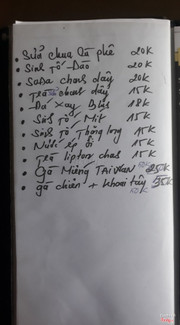 Sữa chua cà phê 20K
Sinh Tố Dâo 20K
Soda chanh dây 20K
Trà chanh dây 15K
Đá Xay 18K
Sinh Tố Mít 15K
Sinh Tố Thăng long 15K
Nước ép ổi 15K
Trà lipton chanh 15K
Gà Miếng TAIWAN 25K
gà chiên + khoai tây 35K